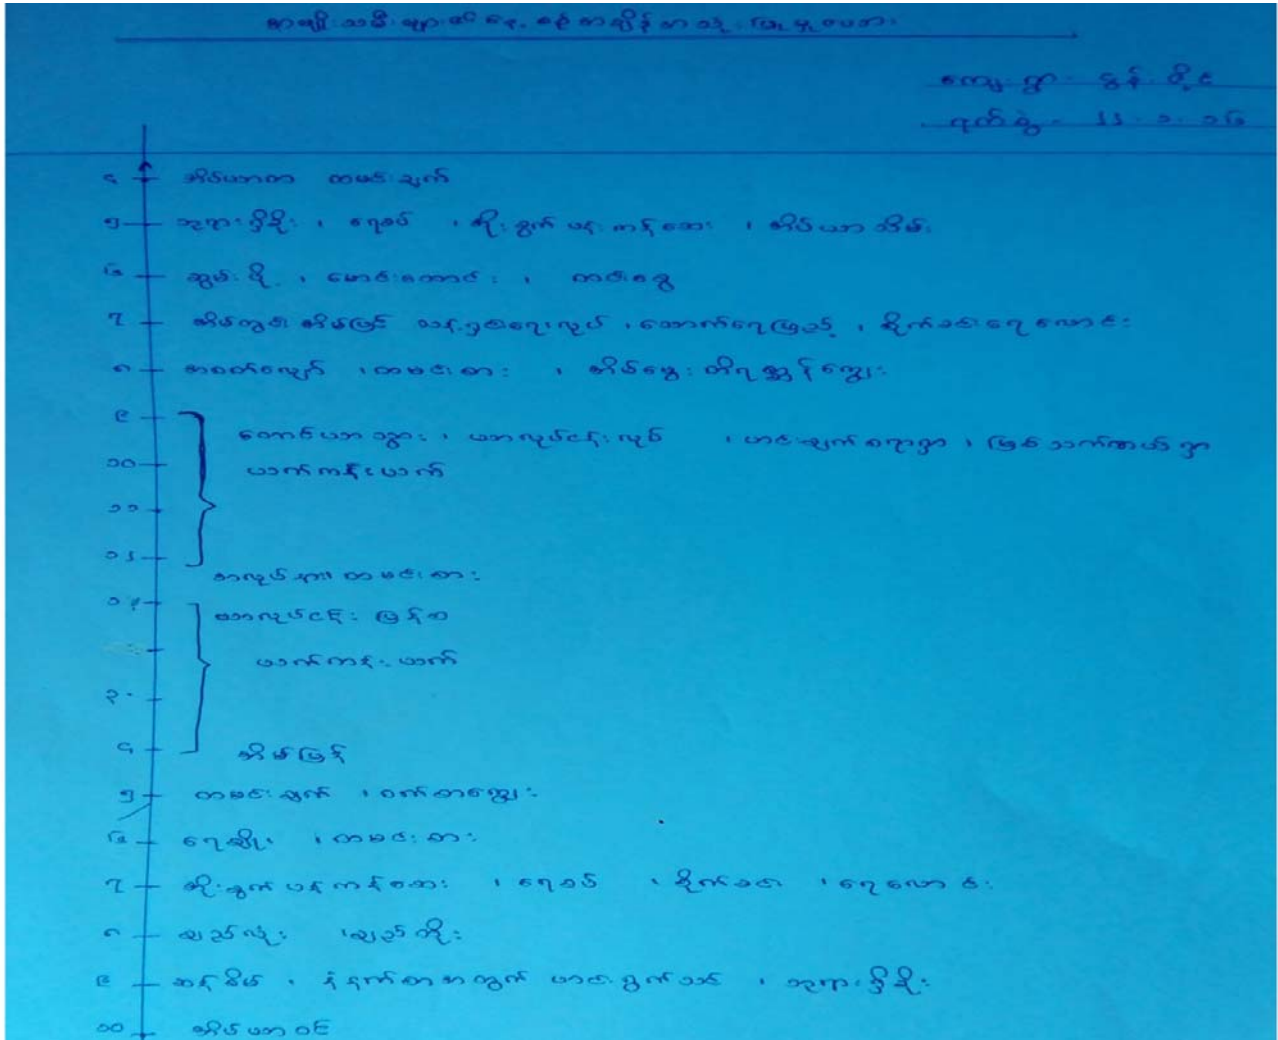 အမျိုးသမီးများ၏ နေ့စဉ်အချိန်အသုံးပြုမှုဇယား
ကျေးရွာ - 
ရက်စွဲ - ၁၁-၁-၁၆
၄ အိပ်ယာထ ထမင်းချက်
၅ ဘုရားရှိခိုး ၊ ရေခပ် ၊ အိုးခွက်ပန်းကန်ဆေး ၊ အိပ်ယာသိမ်း
၆ ဆွမ်းပို့ ၊ မောင်းထောင်း ၊
၇ အိမ်တွင်း အိမ်ပြင် သန့်ရှင်းရေးလုပ် ၊ သောက်ရေဖြည့် ၊ စိုက်ခင်းရေလောင်း
၈ အဝတ်လျှော် ၊ ထမင်းစား ၊ အိမ်မွေးတိရစ္ဆာန်ကျွေး
၉
တောင်ယာသွား ၊ ယာလုပ်ငန်းလုပ် ၊ ဟင်းချက်စရာရှာ ၊
၁၀ ယက်ကန်းယက်
၁၁
၁၂
အလုပ်နား ထမင်းစား
၁
ယာလုပ်ငန်း ပြန်စ
ယက်ကန်းယက်
၃
၄ အိမ်ပြန်
၅ ထမင်းချက် ၊ ဝက်စာကျွေး
၆ ရေချိုး ၊ ထမင်းစား
၇ အိုးခွက်ပန်းကန်ဆေး ၊ ရေခပ် ၊ စိုက်ခင်း ၊ ရေလောင်း
၈ ချည်လုံး ၊
၉ ဆန်စိမ် ၊ နံနက်စာအတွက် ဟင်းရွက်သင် ၊ ဘုရားရှိခိုး
၁၀ အိပ်ယာဝင်